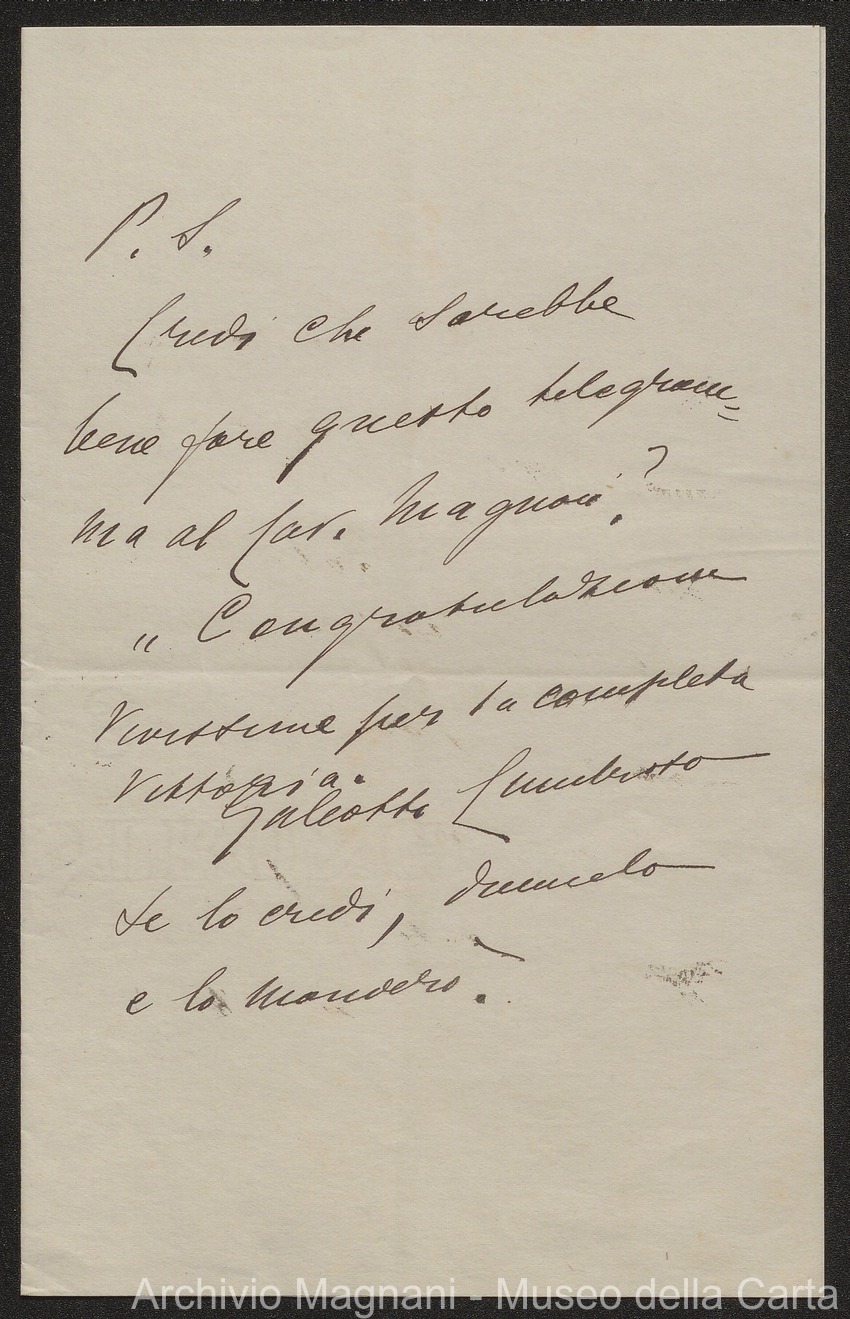 P. S.
Credi che sarebbe
bene fare questo telegram=
ma al Cav. Magnani?
„ Congratulazione
vivissime per la completa
vittoria.
Galeotti Lumbroso
Se lo credi, dimmelo
e lo manderò.
Archivio Magnani - Museo della Carta